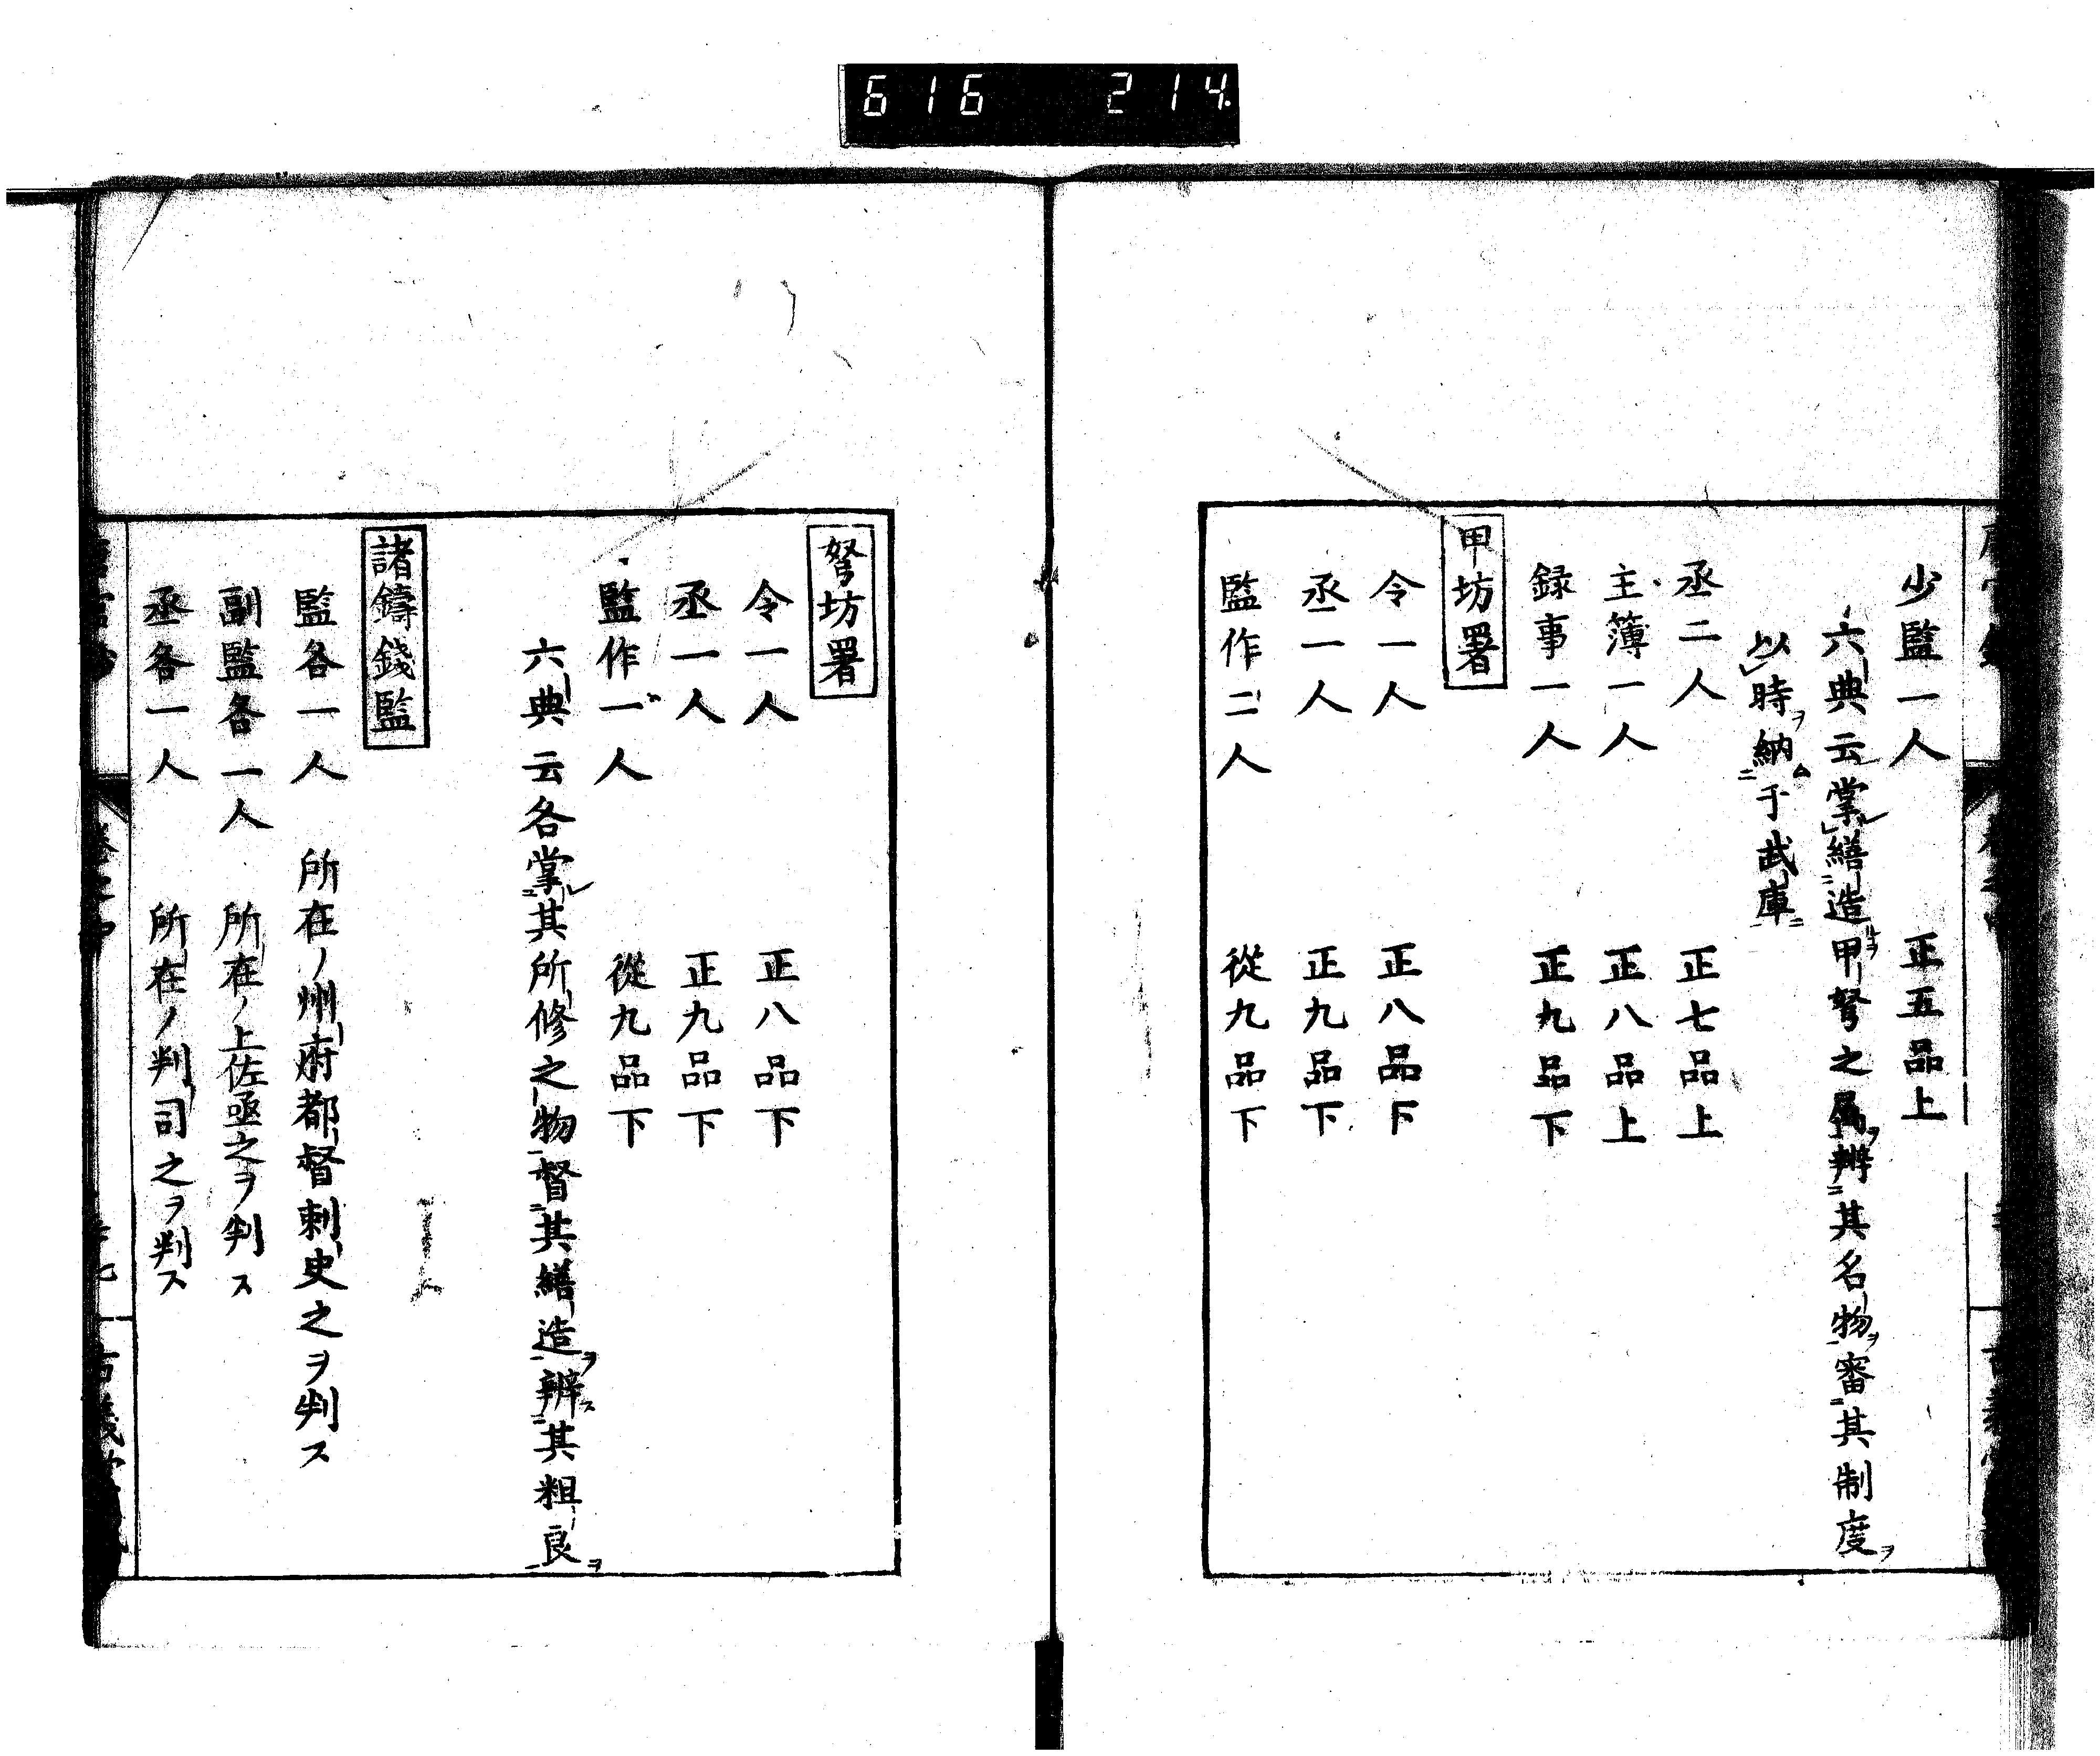 616 214
少監一人 正五品上
六典云掌繕造甲弩之属辨其名物審其制度
以時納于武庫
丞二人 正七品上
主簿一人 正八品上
録事一人 正九品下
甲坊署
令一人 正八品下
丞一人 正九品下
監作二人 從九品下
弩坊署
令一人 正八品下
丞一人 正九品下
監作一人 從九品下
六典云各掌其所修之物督其繕造辨其粗良
諸鑄錢監
監各一人 所在ノ州府都督刺史之ヲ判ス
副監各一人 所在ノ上佐亟之ヲ判ス
丞各一人 所在ノ判司之ヲ判ス